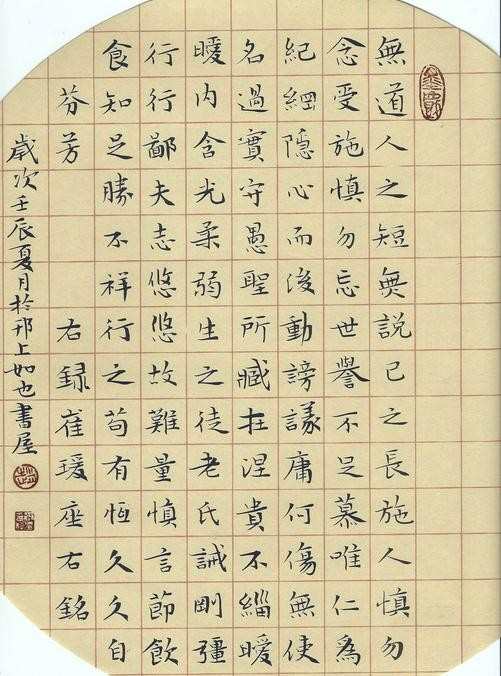 無道人之短無説己之長施人慎勿
念受施慎勿忘世譽不足慕唯仁為
紀綱隱心而後動謗議庸何傷無使
名過實守愚聖所臧在涅貴不緇曖
曖内含光柔弱生之徒老氏誡剛彊
行行鄙夫志悠悠故難量慎言節飲
食知足勝不祥行之苟有恆久久自
芬芳 右録崔瑗座右銘
歲次壬辰夏月於邗上如也書屋